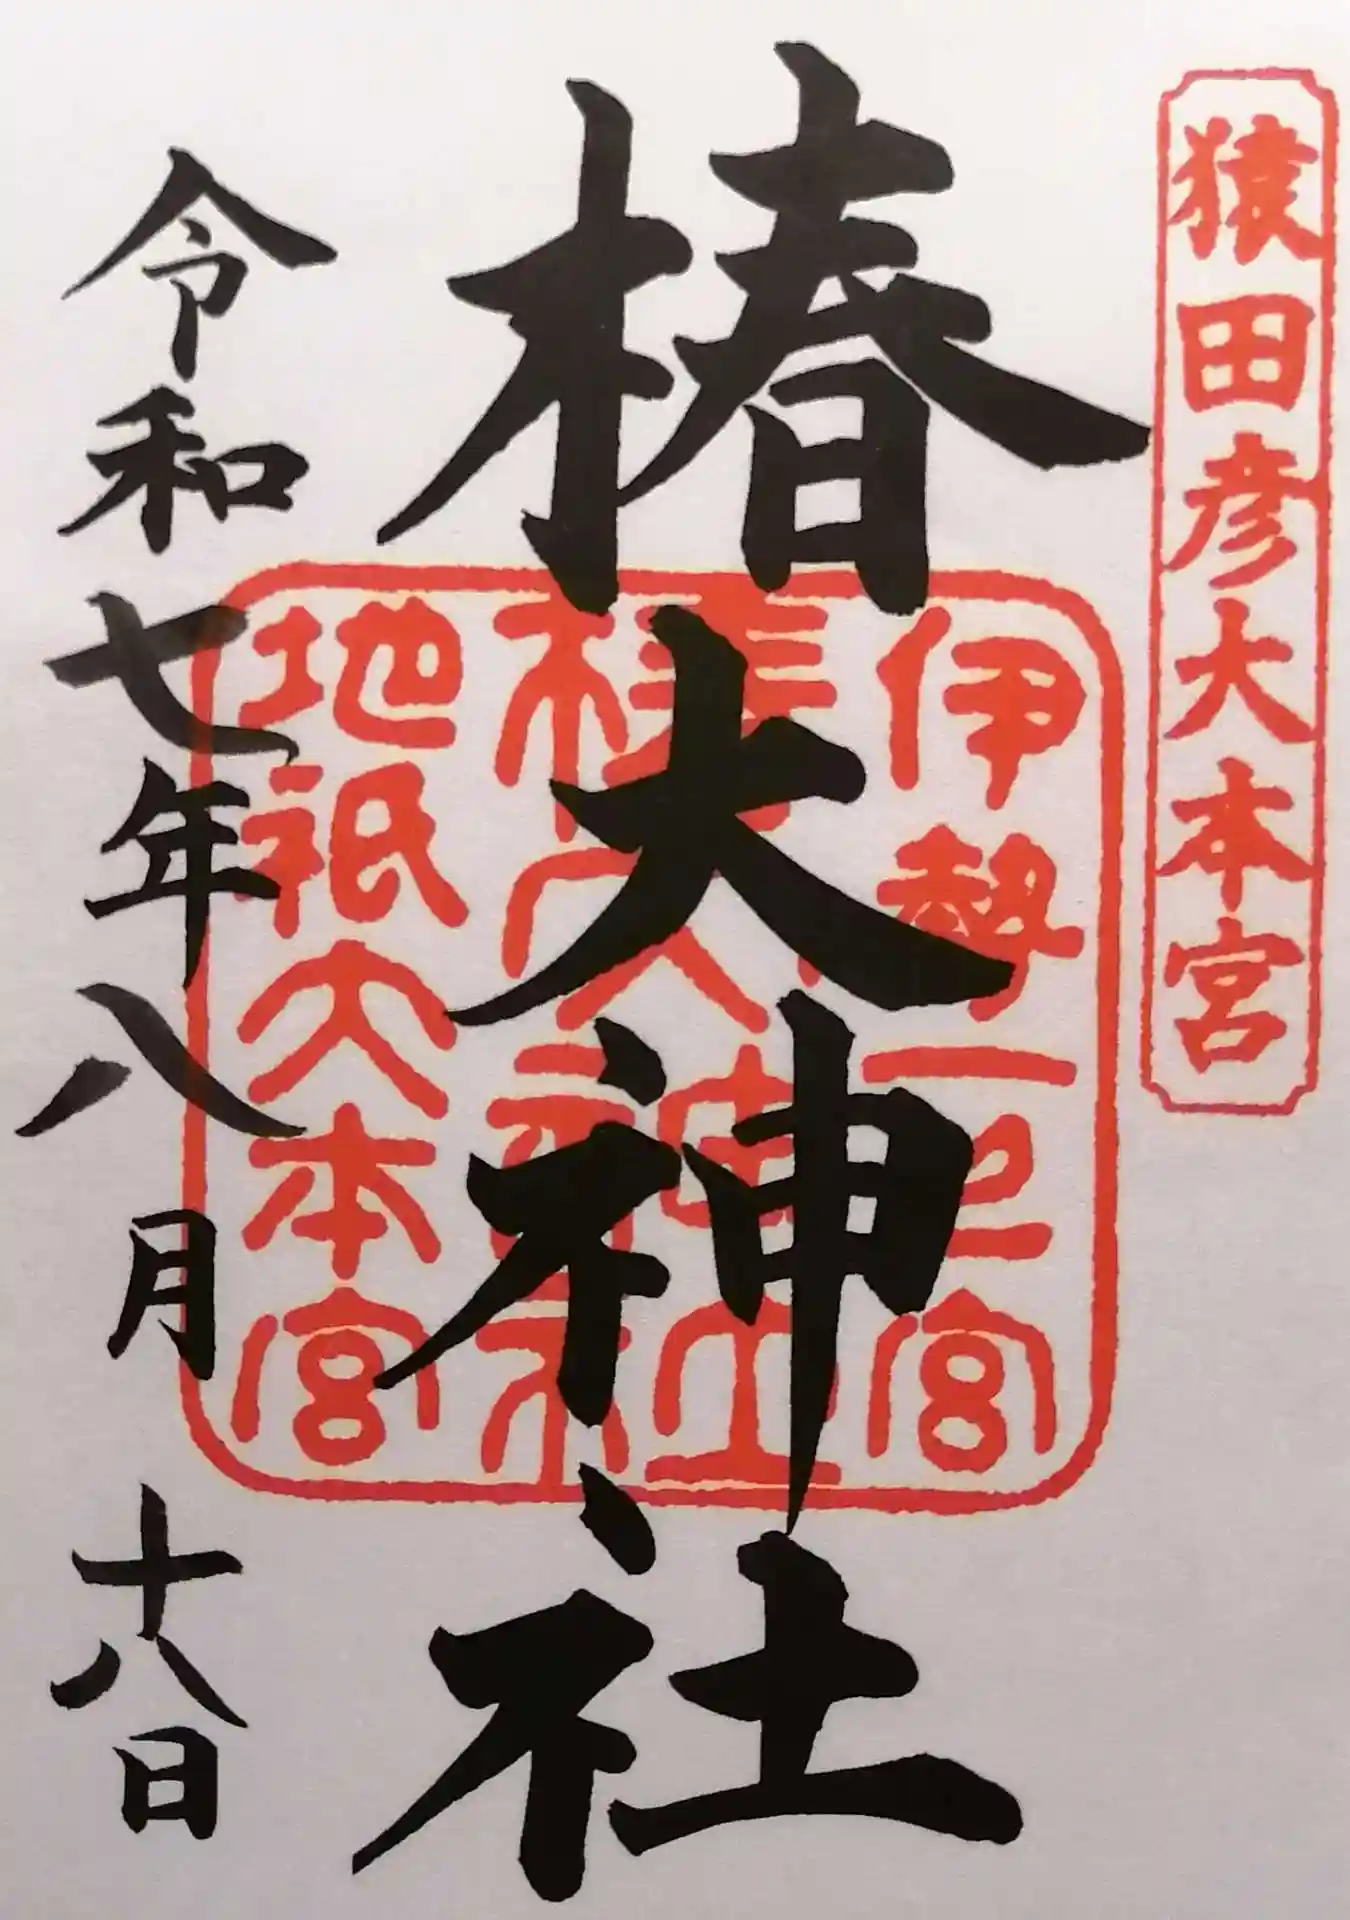 猿田彦大本宮
椿大神社
伊勢一之宮
椿大神社
地祇大本宮
令和七年八月十八日